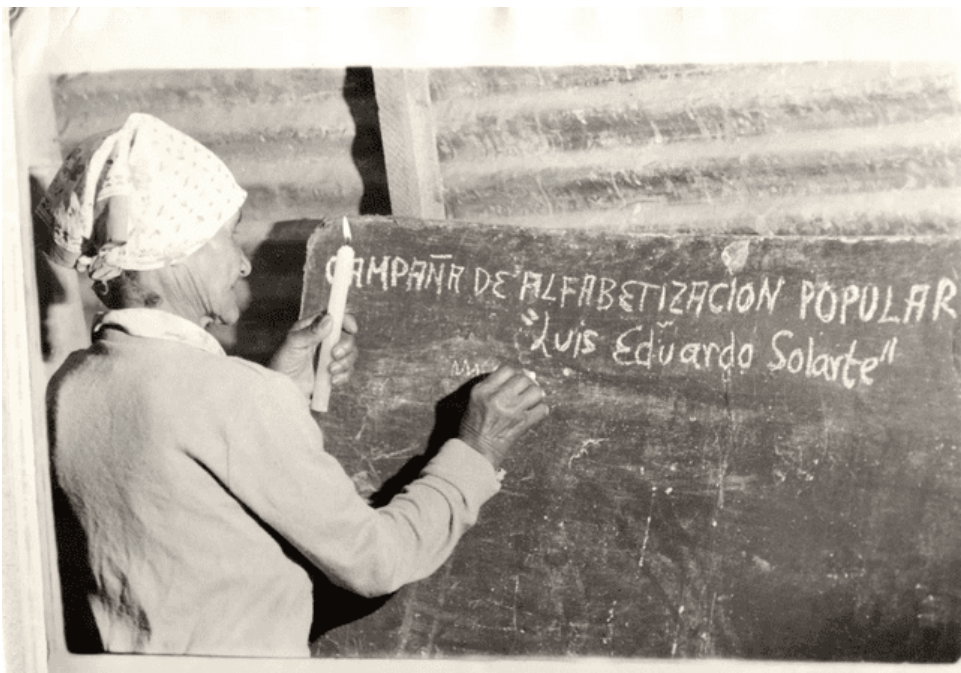 CAMPAÑA DE ALFABETIZACION POPULAR
"Luis Eduardo Solarte"